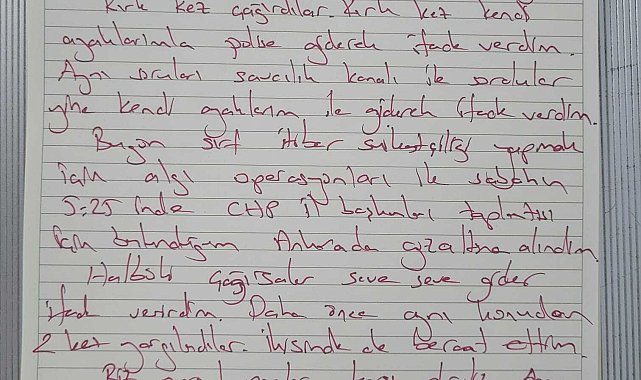 Kırk kez çağırdılar. Kırk kez kendi
ayaklarımla polise giderek ifade verdim.
Aynı soruları savcılık kanalı ile sordular
yine kendi ayaklarım ile giderek ifade verdim.
Bugün sırf itibar suikastçılığı yapmak
için algı operasyonları ile sabahın
5:25 inde CHP il başkanları toplantısı
için bulunduğum Ankarada gözaltına alındım.
Halbuki çağırsalar seve seve gider
ifade verirdim. Daha önce aynı konudan
2 kez yargılandılar. ikisinde de beraat ettim.
Biz